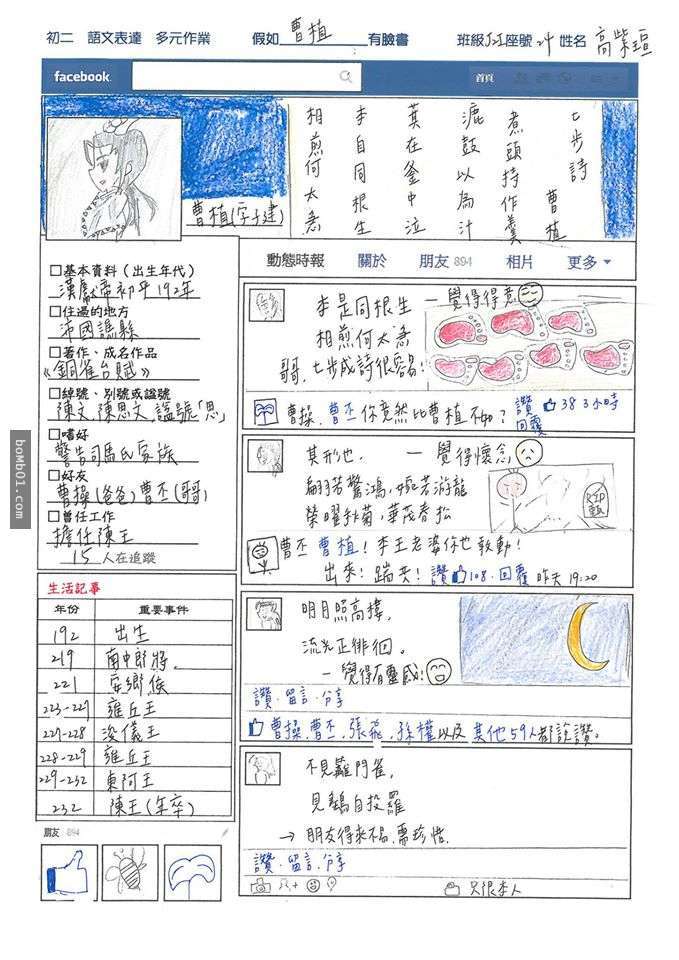 初二 語文表達 多元作業 假如 曹植 有臉書 班級 J2I 座號 24 姓名 高紫瑄
facebook
首頁
七步詩 曹植
煮頭持作羹
漉鼓以為汁
萁在釜中泣
本自同根生
相煎何太急
曹植(字子建)
動態時報 關於 朋友 894 相片 更多
□基本資料(出生年代)
漢獻帝初平192年
□住過的地方
沛國譙縣
□著作、成名作品
《銅雀台賦》
□綽號、別號或謚號
陳文,陳思文,謚號「思」
□嗜好
警告司馬氏家族
□好友
曹操(爸爸)曹丕(哥哥)
□曾任工作
擔任陳王
15 人在追蹤
生活記事
年份 重要事件
192 出生
219 南中郎將.
221 安鄉侯
223-227 雍丘王
227-228 浚儀王
228-229 雍丘王
229-232 東阿王
232 陳王(年卒)
朋友·894
本是同根生 —覺得得意
相煎何太急
哥,七步成詩很容易!
曹操,曹丕你竟然比曹植不如? 讚 38 3小時
回覆
其形也. —覺得懷念
翩若驚鴻,婉若游龍
榮曜秋菊,華茂春松
RIP
甄
曹丕 曹植!本王老婆你也敢動!
出來!踹共! 讚 108.回覆 昨天 19:20
明月照高樓,
流光正徘徊。
—覺得有靈感!
讚·留言·分享
曹操,曹丕,張飛,孫權以及 其他59人都說讚。
不見籬門雀,
見鷂自投羅
→朋友得來不易,需珍惜.
讚·留言·分享
只限本人
bomb01.com